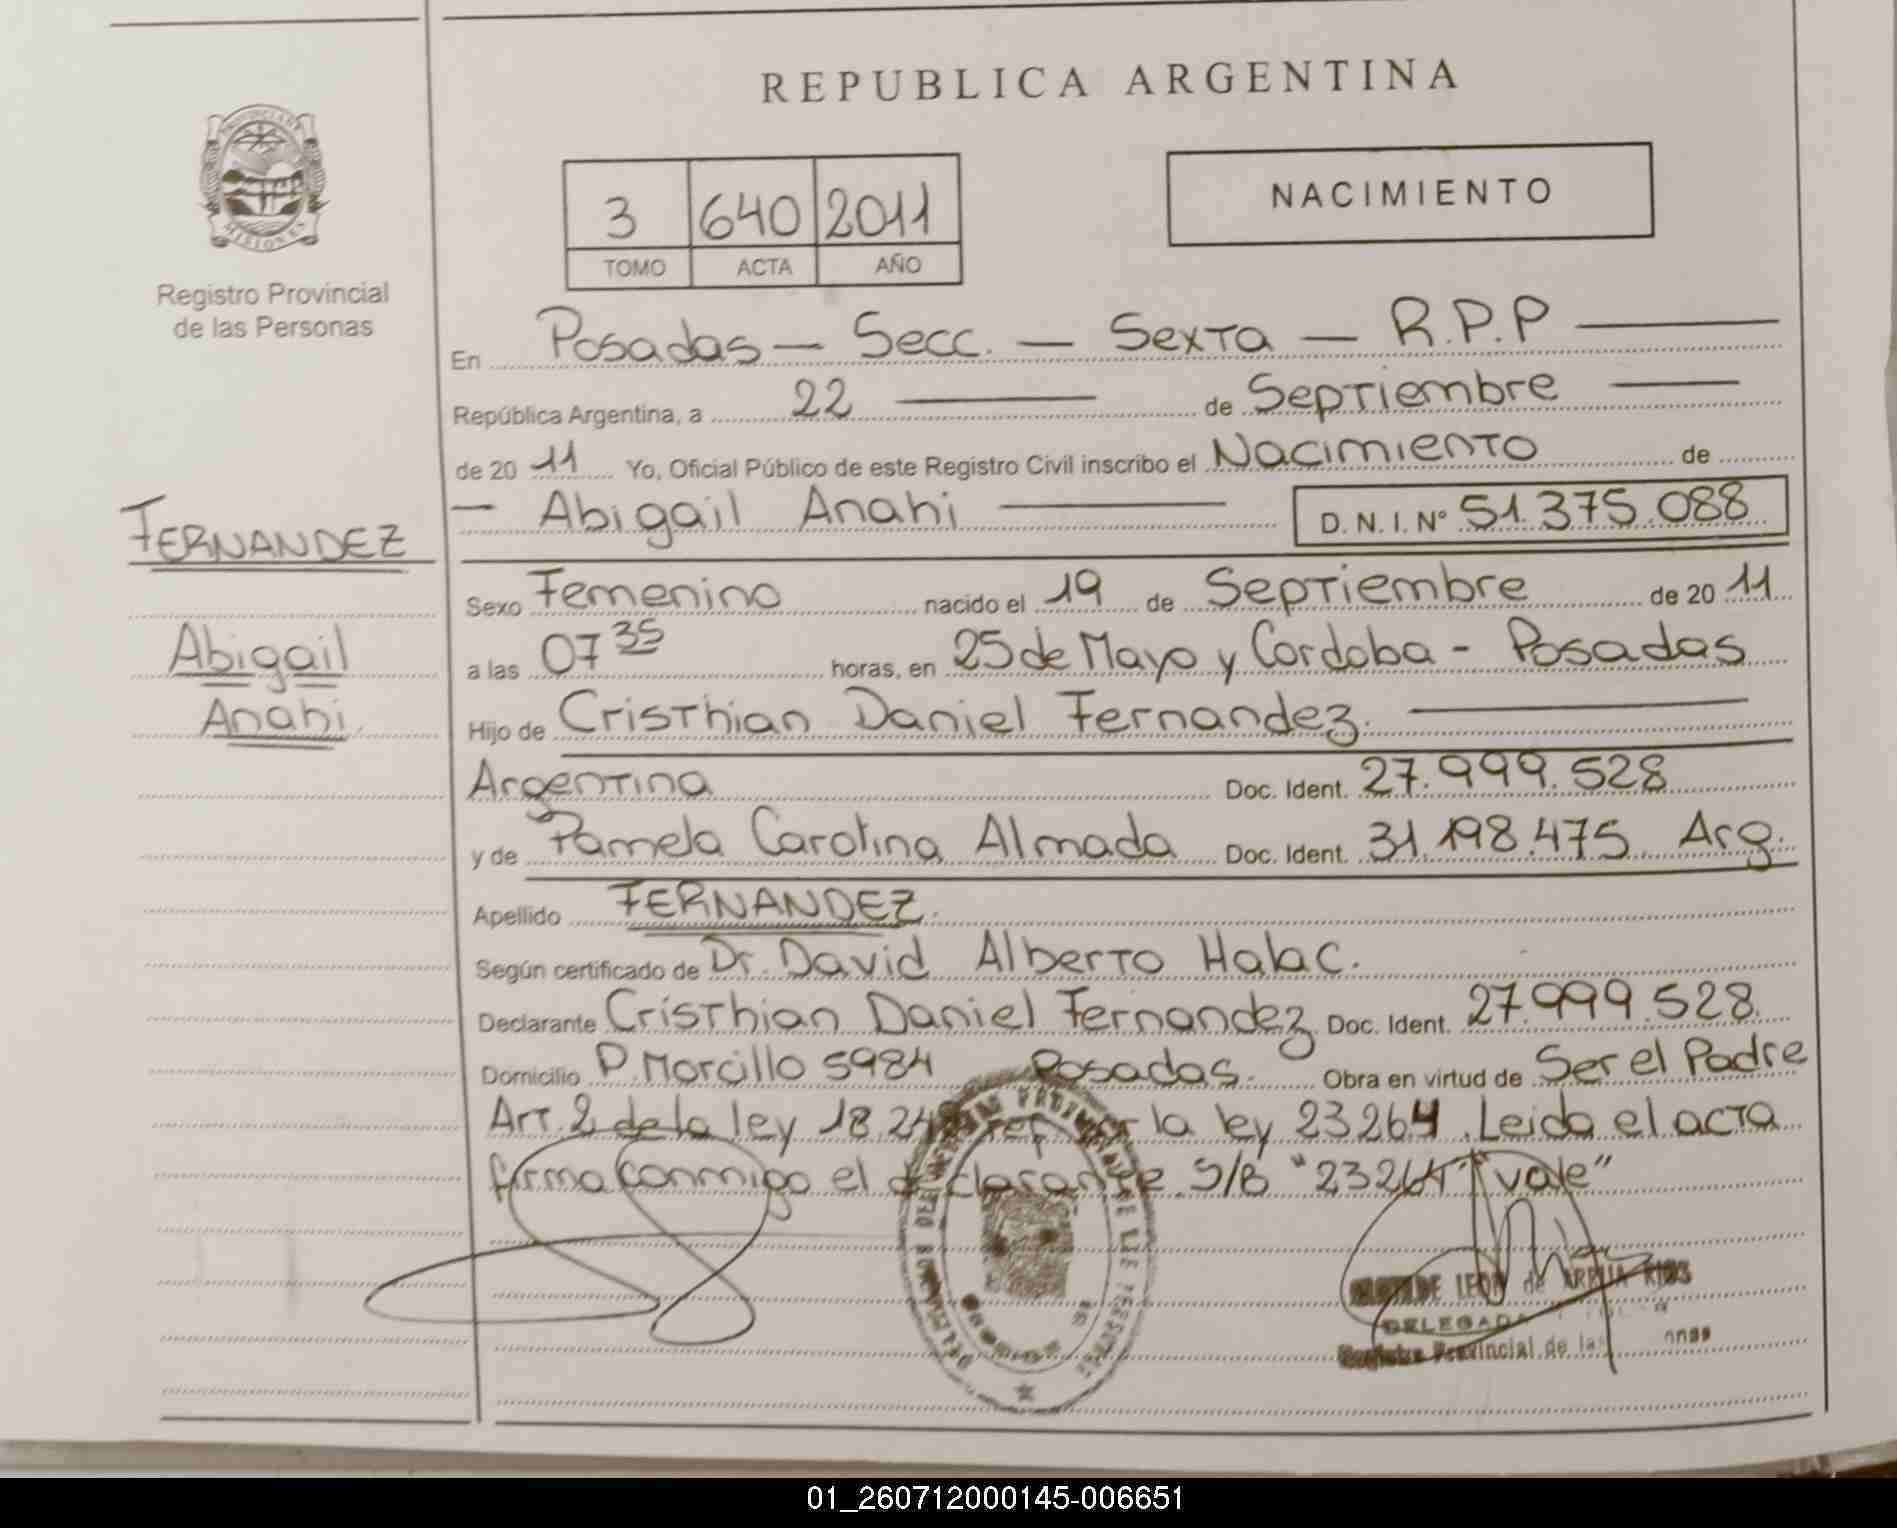 REPUBLICA ARGENTINA
PROVINCIA DE MISIONES
Registro Provincial
de las Personas
3 640 2011
TOMO ACTA AÑO
NACIMIENTO
En Posadas — Secc. — Sexta — R.P.P
República Argentina, a 22 de Septiembre
de 20 11 Yo, Oficial Público de este Registro Civil inscribo el Nacimiento de
— Abigail Anahi — D.N.I. Nº 51.375.088
FERNANDEZ
Abigail
Anahi
Sexo Femenino nacido el 19 de Septiembre de 20 11
a las 07 35 horas, en 25 de Mayo y Cordoba - Posadas
Hijo de Cristhian Daniel Fernandez.
Argentina Doc. Ident. 27.999.528
y de Pamela Carolina Almada Doc. Ident. 31.198.475 Arg.
Apellido FERNANDEZ.
Según certificado de Dr. David Alberto Halac.
Declarante Cristhian Daniel Fernandez Doc. Ident. 27.999.528.
Domicilio P. Morcillo 5984 Posadas. Obra en virtud de Ser el Padre
Art. 2 de la ley 18.248 ref por la ley 23264. Leida el acta
firma conmigo el declarante. S/B "23264" "vale"
LEON de
DELEGADA
Registro Provincial de las
01_260712000145-006651